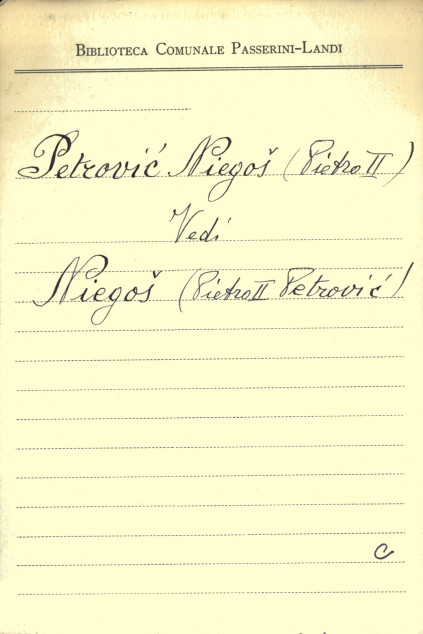 Biblioteca Comunale Passerini-Landi
Petrović Niegoš (Pietro II)
Vedi
Niegoš (Pietro II Petrović)
C